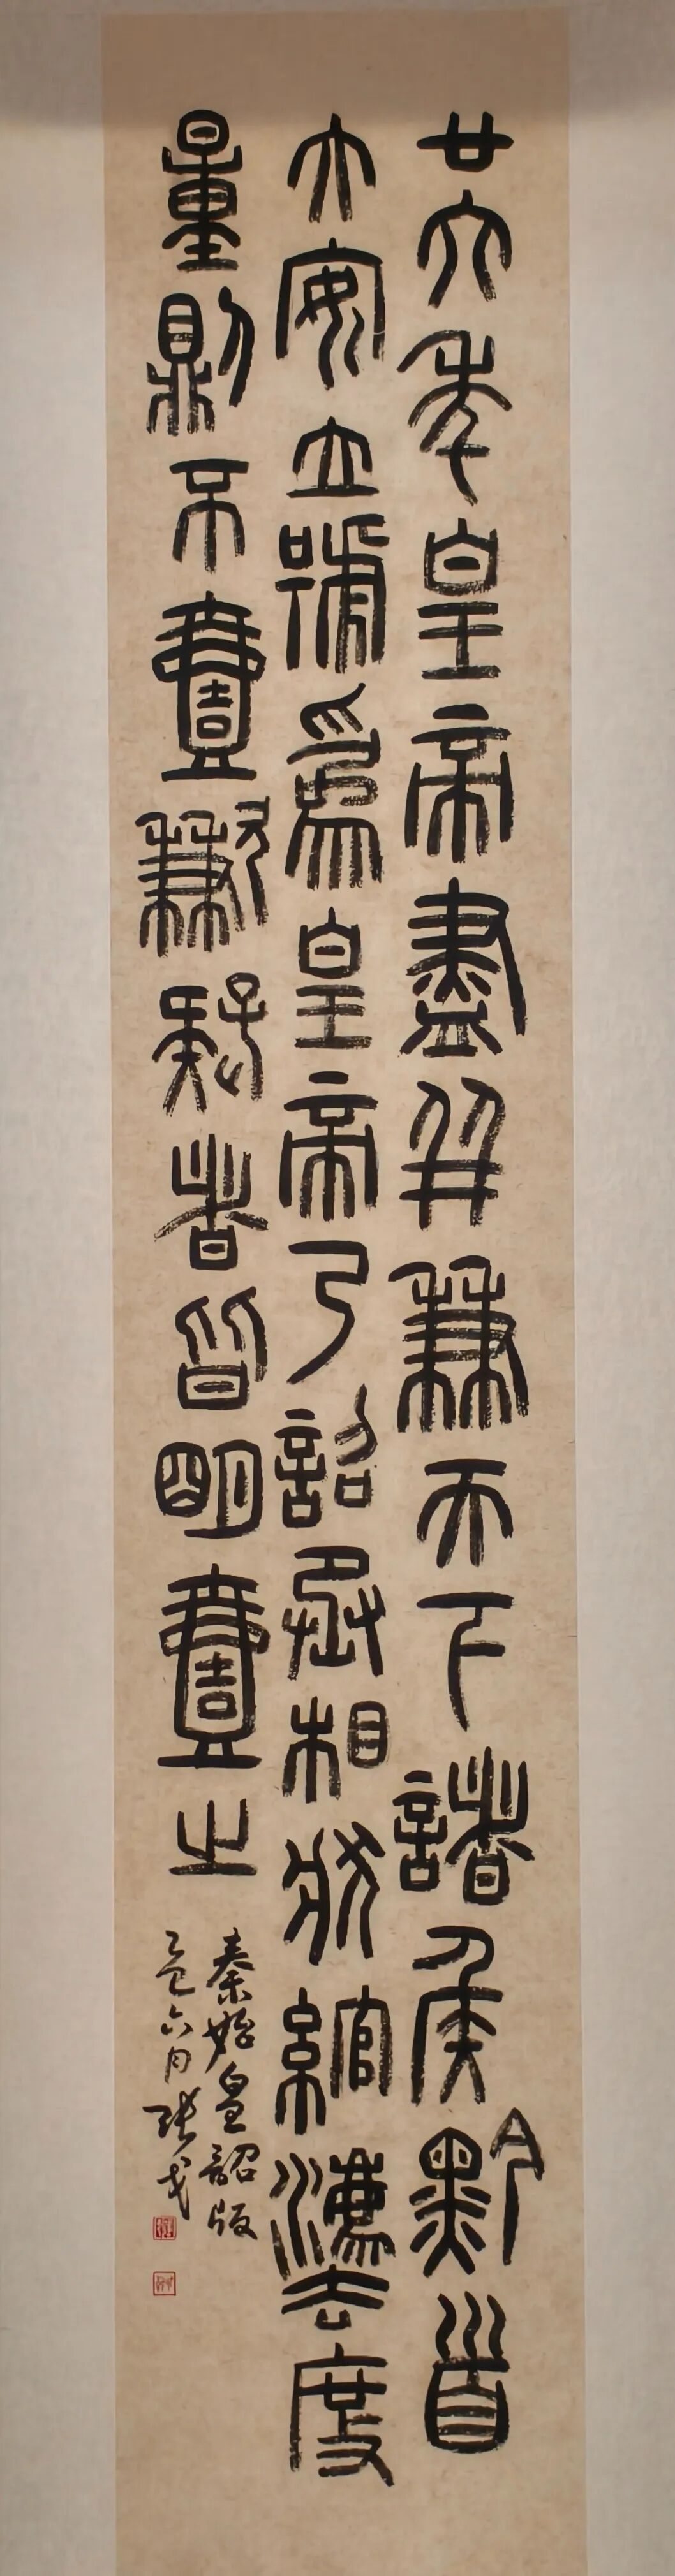 廿六年皇帝盡并兼天下諸侯黔首
大安立號爲皇帝乃詔丞相狀綰灋度
量則不壹歉疑者皆明壹之
秦始皇詔版
乙巳六月